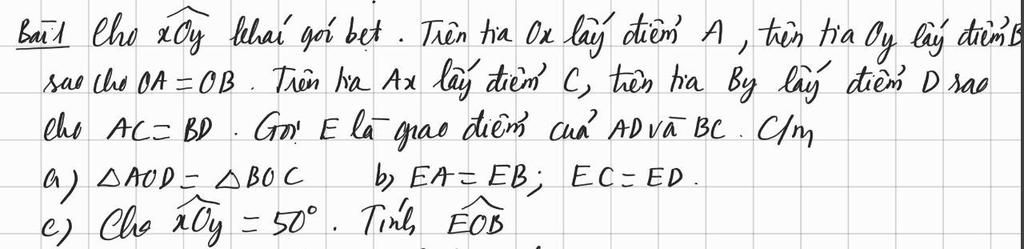 Bài 1 Cho \widehat{xOy} khái gói bẹt. Trên tia Ox lấy điểm A, trên tia Oy lấy điểm B
sao cho OA = OB. Trên tia Ax lấy điểm C, trên tia By lấy điểm D sao
cho AC = BD. Gọi E là giao điểm của AD và BC. C/m
a) △AOD = △BOC b) EA = EB; EC = ED.
c) Cho \widehat{xOy} = 50°. Tính \widehat{EOB}